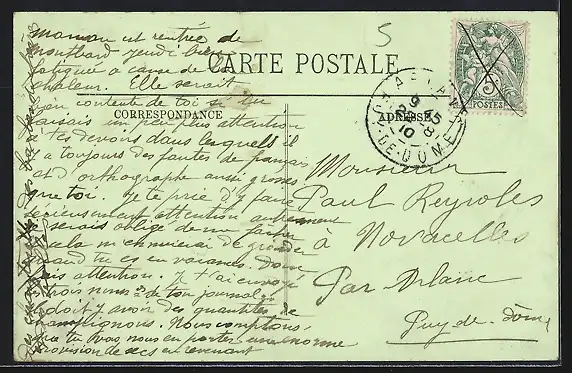 Maman est rentrée de
Montbard jeudi bien
fatiguée à cause de la
chaleur. Elle serait
contente de toi si tu
faisais un peu plus attention
à tes devoirs dans lesquels il
y a toujours des fautes de français
et d'orthographe aussi grosses
que toi. Je te prie d'y faire
sérieusement attention autrement
je serais obligé de me fâcher
cela m'ennuierai de
quand tu es en vacances. Donc
fais attention. Je t'ai envoyé
trois nos de ton journal.
doit y avoir des quantités de
champignons. Nous comptons
que tu vas nous en porter une énorme
provision de secs en revenant
5
CARTE POSTALE
CORRESPONDANCE
ADRESSE
5
POSTES
PUY-DE-DOME
Monsieur
Paul Reyroles
à Novacelles
Par Arlanc
Puy-de-Dôme